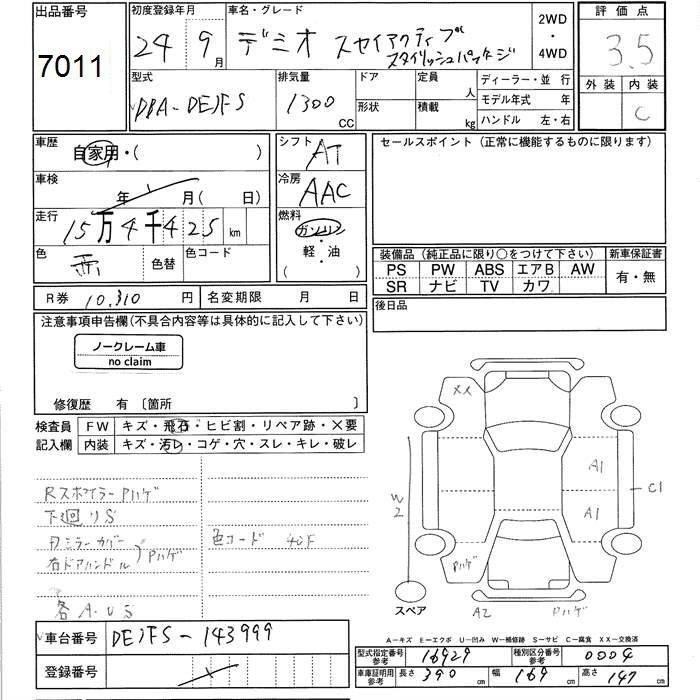 出品番号 7011
初度登録年月 24 9月
車名・グレード デミオ スカイアクティブ
スタイリッシュパッケージ
2WD・4WD
評価点 3.5
外装 内装 C
型式 DBA-DEJFS
排気量 1300 CC
ドア 定員 人
形状 積載 kg
ディーラー・並行
モデル年式 年
ハンドル 左・右
車歴 自家用・( )
車検 年 月(日)
走行 15万4千425 km
色 色替 色コード
シフト AT
冷房 AAC
燃料 ガソリン・軽・油 ( )
セールスポイント (正常に機能するものに限ります)
装備品 (純正品に限り○をつけて下さい)
PS PW ABS エアB AW
SR ナビ TV カワ
新車保証書 有・無
R券 10,310 円 名変期限 月 日
後日品
注意事項申告欄(不具合内容等は具体的に記入して下さい)
ノークレーム車
no claim
修復歴 有 〔箇所 〕
検査員 FW キズ・飛石・ヒビ割・リペア跡・×要
記入欄 内装 キズ・汚レ・コゲ・穴・スレ・キレ・破レ
Rスポイラー Pハゲ
下廻りS
右ドアハンドル Pハゲ
色コード 40F
各A.US
XX
A1
A1
C1
W2
Pハゲ
スペア A2 Pハゲ
A-キズ E-エクボ U-凹み W-補修跡 S-サビ C-腐食 XX-交換済
車台番号 DEJFS-143999
登録番号
型式指定番号 参考 16929 種別区分番号 参考 0004
車庫証明用 参考 長さ 390 cm 幅 169 cm 高さ 147 cm